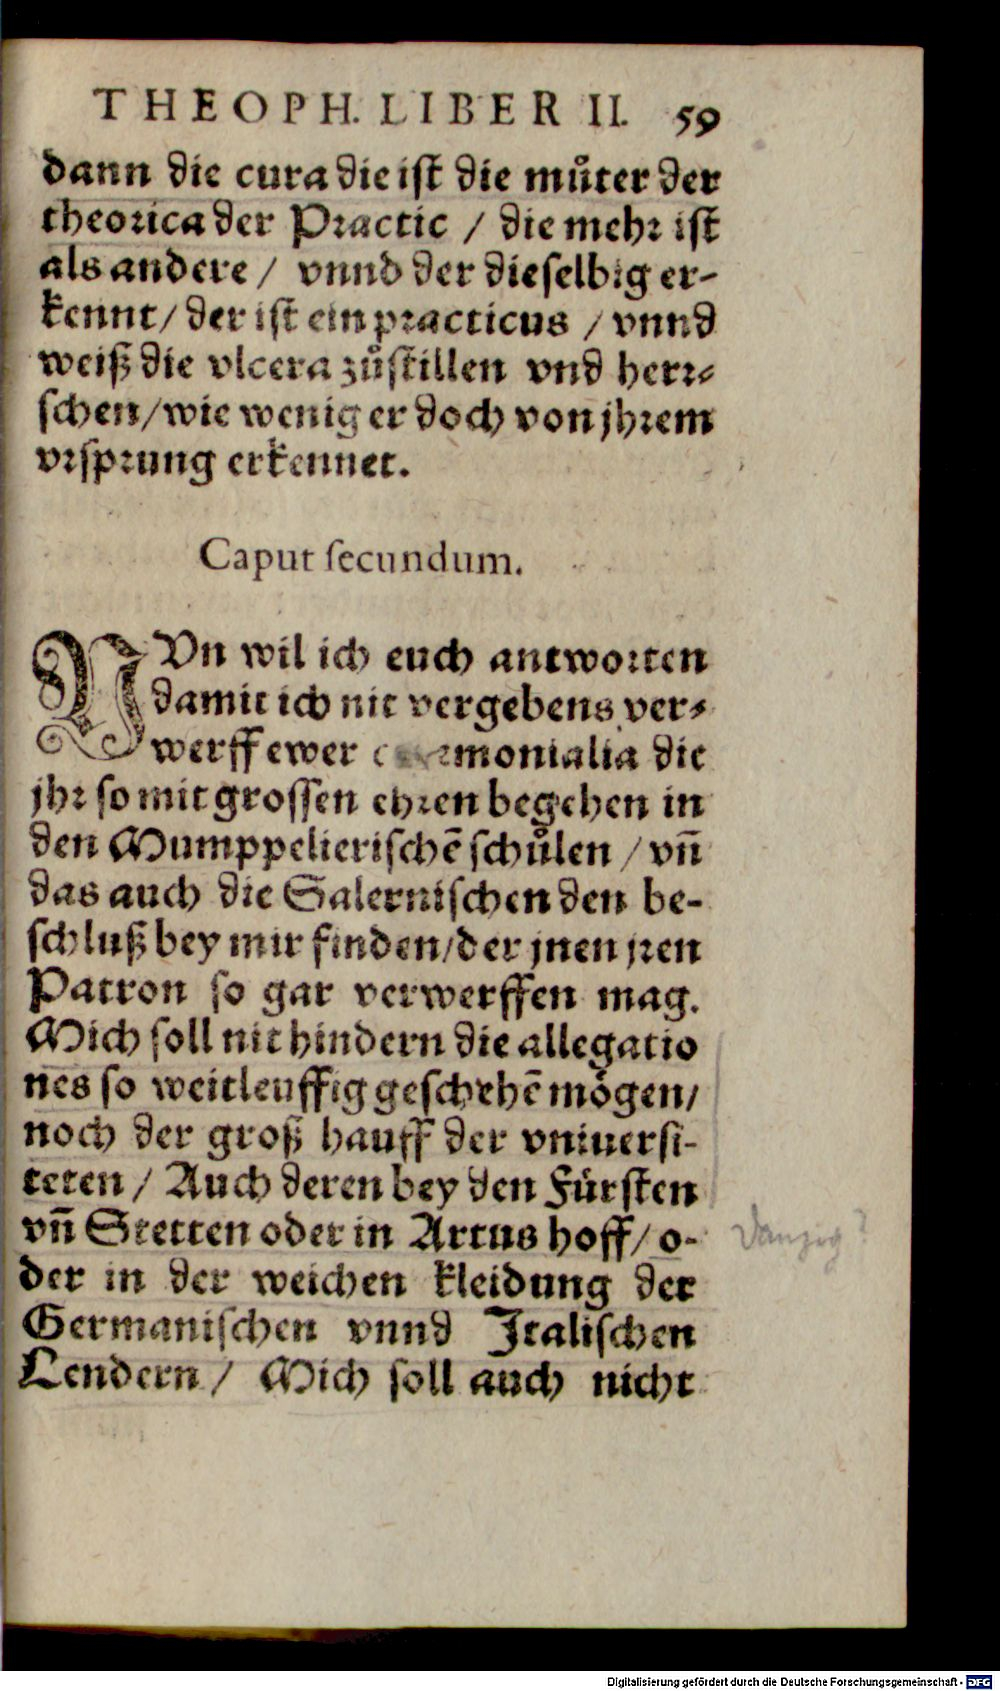 THEOPH. LIBER II. 59
dann die cura die ist die můter der
theorica der Practic / die mehr ist
als andere / vnnd der dieselbig er-
kennt / der ist ein practicus / vnnd
weiß die vlcera zůstillen vnd herr-
schen / wie wenig er doch von jhrem
vrsprung erkennet.
Caput secundum.
NVn wil ich euch antworten
damit ich nit vergebens ver-
werff ewer monialia die
jhr so mit grossen ehren begehen in
den Mumppelierischē schůlen / vñ
das auch die Salernischen den be-
schluß bey mir finden / der jnen jren
Patron so gar verwerffen mag.
Mich soll nit hindern die allegatio
nes so weitleuffig geschehē mögen /
noch der groß hauff der vniuersi-
teten / Auch deren bey den Fürsten
vñ Stetten oder in Artus hoff / o-
der in der weichen kleidung der
Germanischen vnnd Italischen
Lendern / Mich soll auch nicht
Danzig?
Digitalisierung gefördert durch die Deutsche Forschungsgemeinschaft - DFG